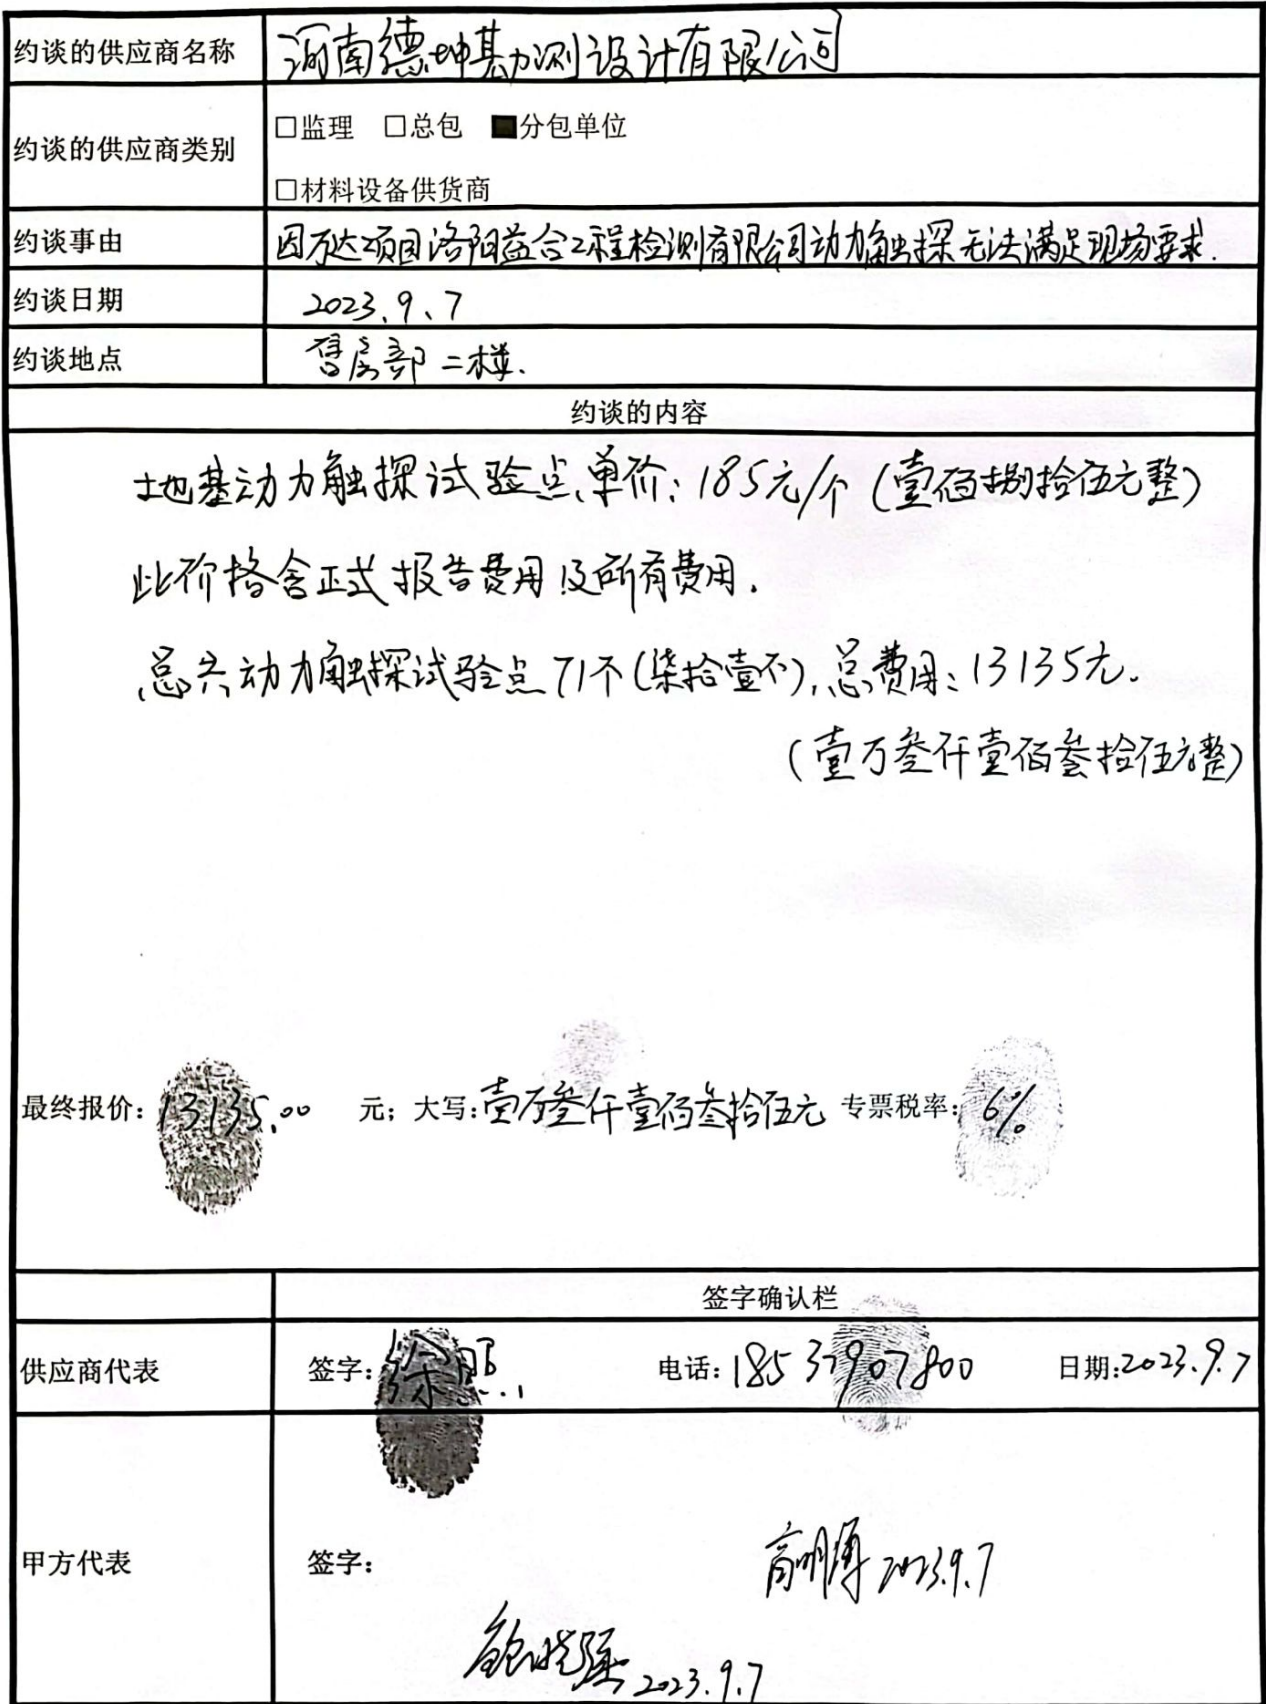 约谈的供应商名称 河南德坤勘测设计有限公司
约谈的供应商类别 □监理 □总包 ■分包单位
□材料设备供货商
约谈事由 因万达项目洛阳益合工程检测有限公司动力触探无法满足现场要求.
约谈日期 2023.9.7
约谈地点 售房部二楼.
约谈的内容
土地基动力触探试验点,单价:185元/个(壹佰捌拾伍元整)
此价格含正式报告费用及所有费用.
总共动力触探试验点71个(柒拾壹个),总费用:13135元.
(壹万叁仟壹佰叁拾伍元整)
最终报价:13135.00 元;大写:壹万叁仟壹佰叁拾伍元 专票税率:6%
签字确认栏
供应商代表 签字:徐照 电话:18537907800 日期:2023.9.7
甲方代表 签字: 2023.9.7
2023.9.7